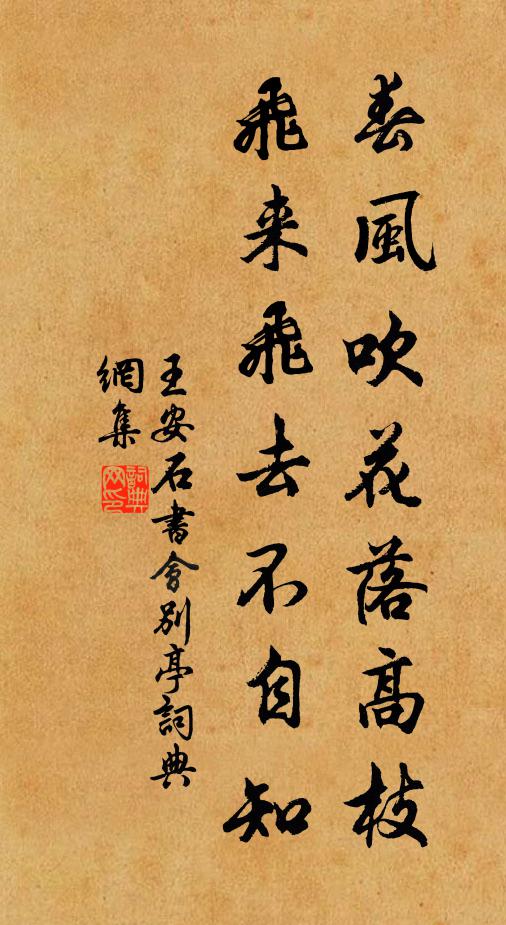 春風吹花落高枝
飛来飛去不自知
王安石書會別亭詞典
網集
詞典
网印